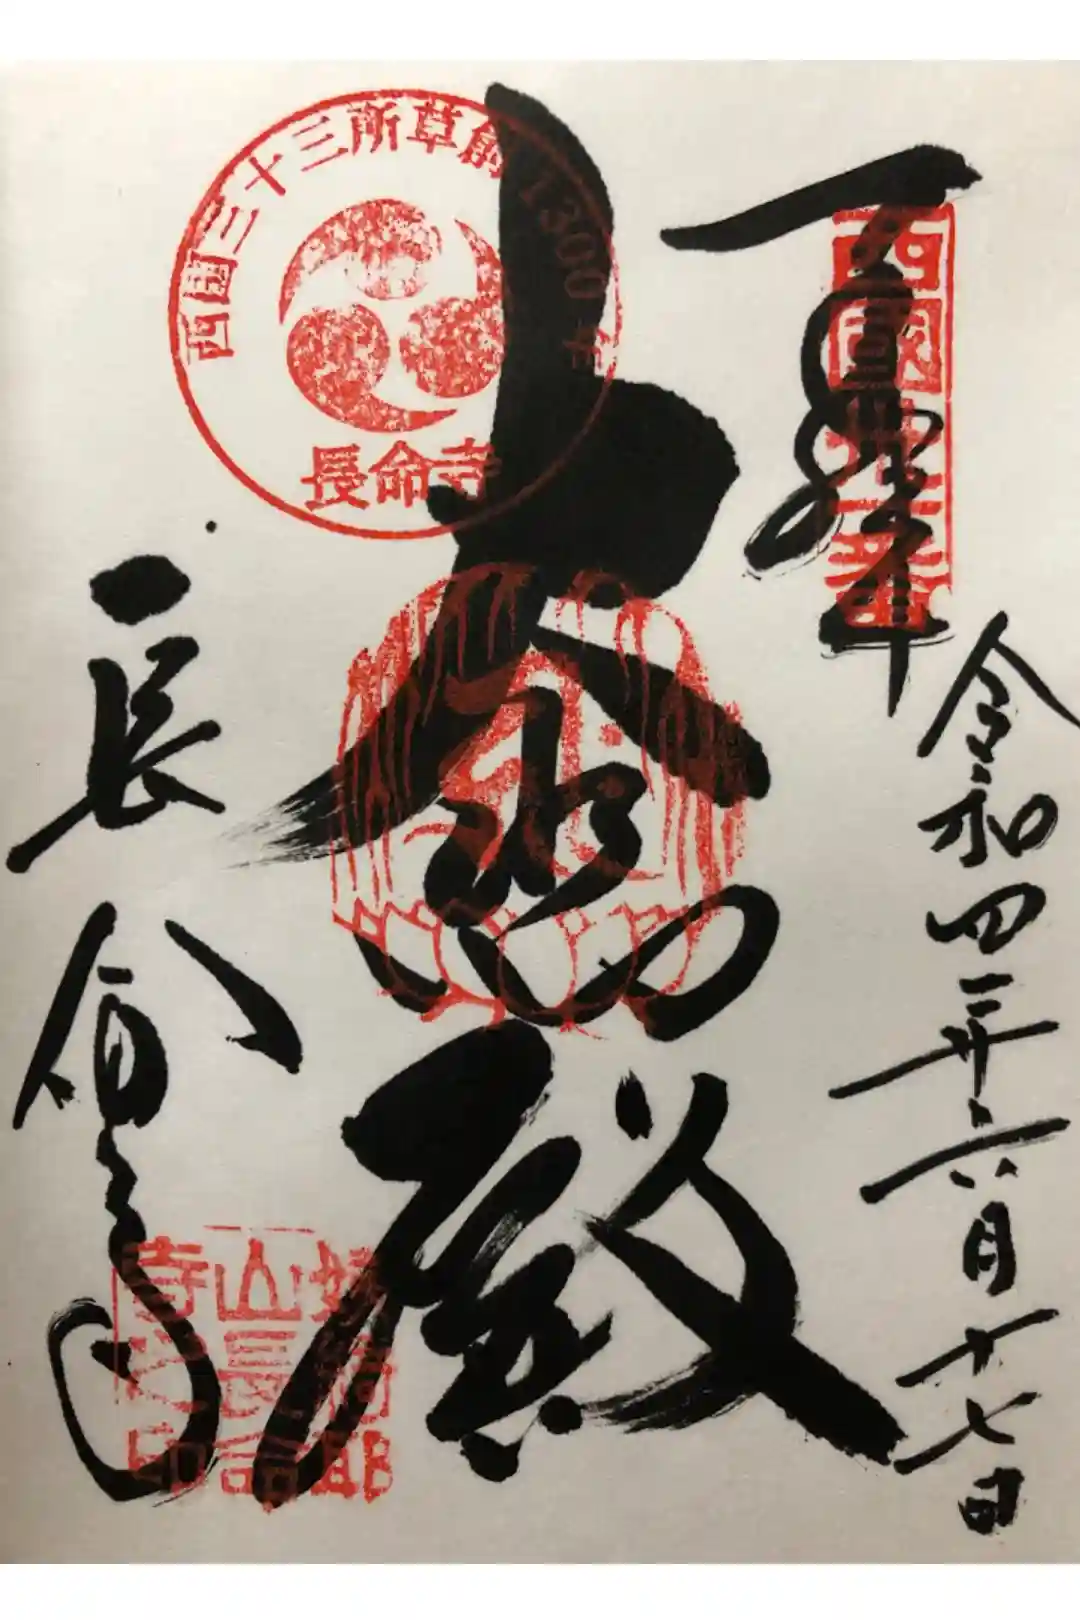 奉拝
西國丗一番
令和四年六月十七日
西國三十三所草創1300年
長命寺
大悲殿
長命寺
姨綺耶
山長命
寺之印